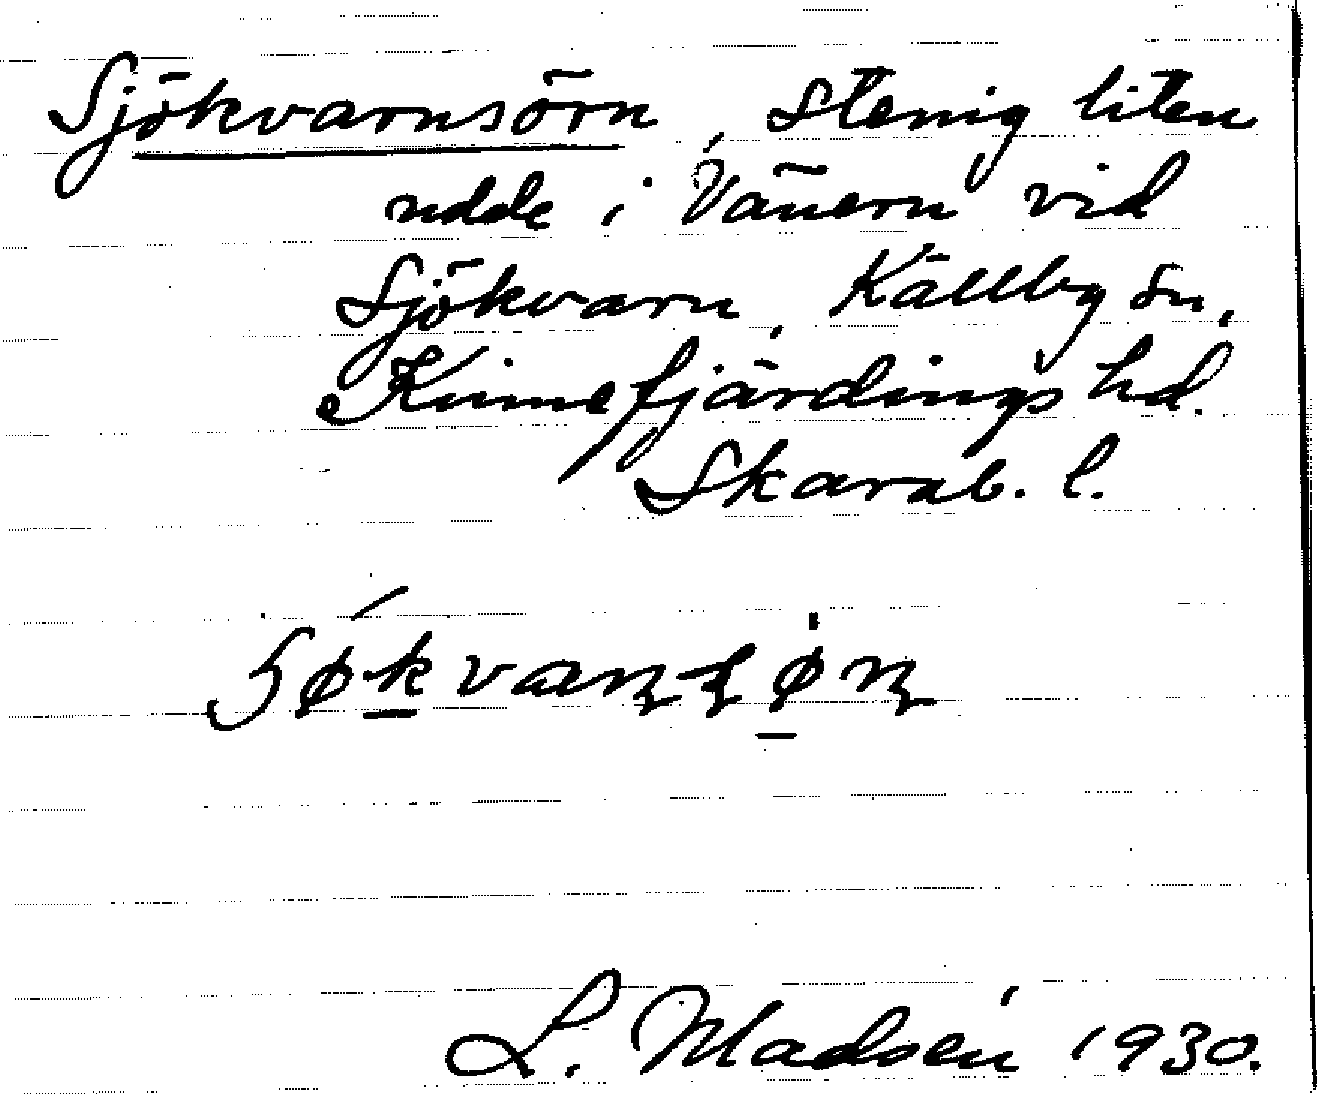 Sjökvarnsörn, Stenig liten
udde i Vänern vid
Sjökvarn, Källby sn,
Kinnefjärdings hd.
Skarab. l.
L. Madsén 1930.